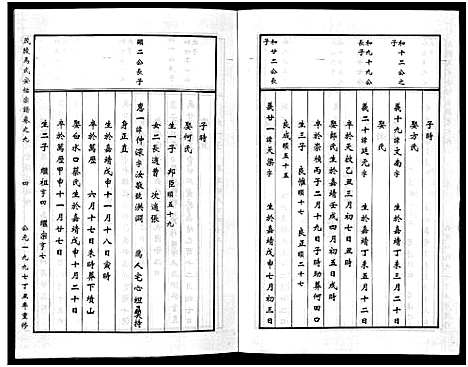 和十二公之子
義十九諱文南字
生於嘉靖丁未三月二十日
娶方氏
和十九公長子
義二十諱廷元字
生於嘉靖丁未五月十二日
卒於天啟乙丑三月初七日戌時
娶鄭氏生於嘉靖壬戌四月初五日戌時
卒於崇禎丙子二月十九日子時助葬何田口
生三子 良惟 良正
良成順五十五
和廿二公長子
義廿一諱天梁字
生於嘉靖戊申七月初三日
子時
娶何氏
生一子 邦臣順五十九
女二長適曹 次適張
頤二公長子
惠一諱仲深字汝敬號洪澗 為人宅心坦夷持
身正直
生於嘉靖戊申十一月十八日寅時
卒於萬曆 六月十七日未時葬下墳山
娶白水口蔡氏生於嘉靖戊申十月二十日
卒於萬曆甲申十一月廿七日
生二子 繼祖亨四 繼宗亨七
茂陵馬氏安怡宗譜卷之九 四 公元一九九七丁丑年重修